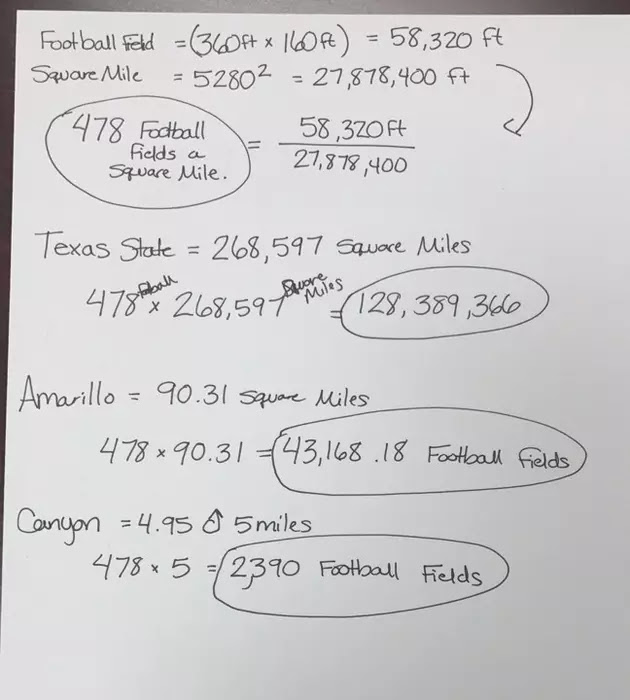 Football Field = (360ft x 160ft) = 58,320 ft
Square Mile = 5280² = 27,878,400 ft
478 Football Fields a Square Mile. = 58,320 Ft / 27,878,400
Texas State = 268,597 Square Miles
478 Football x 268,597 Square Miles = 128,389,366
Amarillo = 90.31 Square Miles
478 x 90.31 = 43,168.18 Football Fields
Canyon = 4.95 5 miles
478 x 5 = 2,390 Football Fields